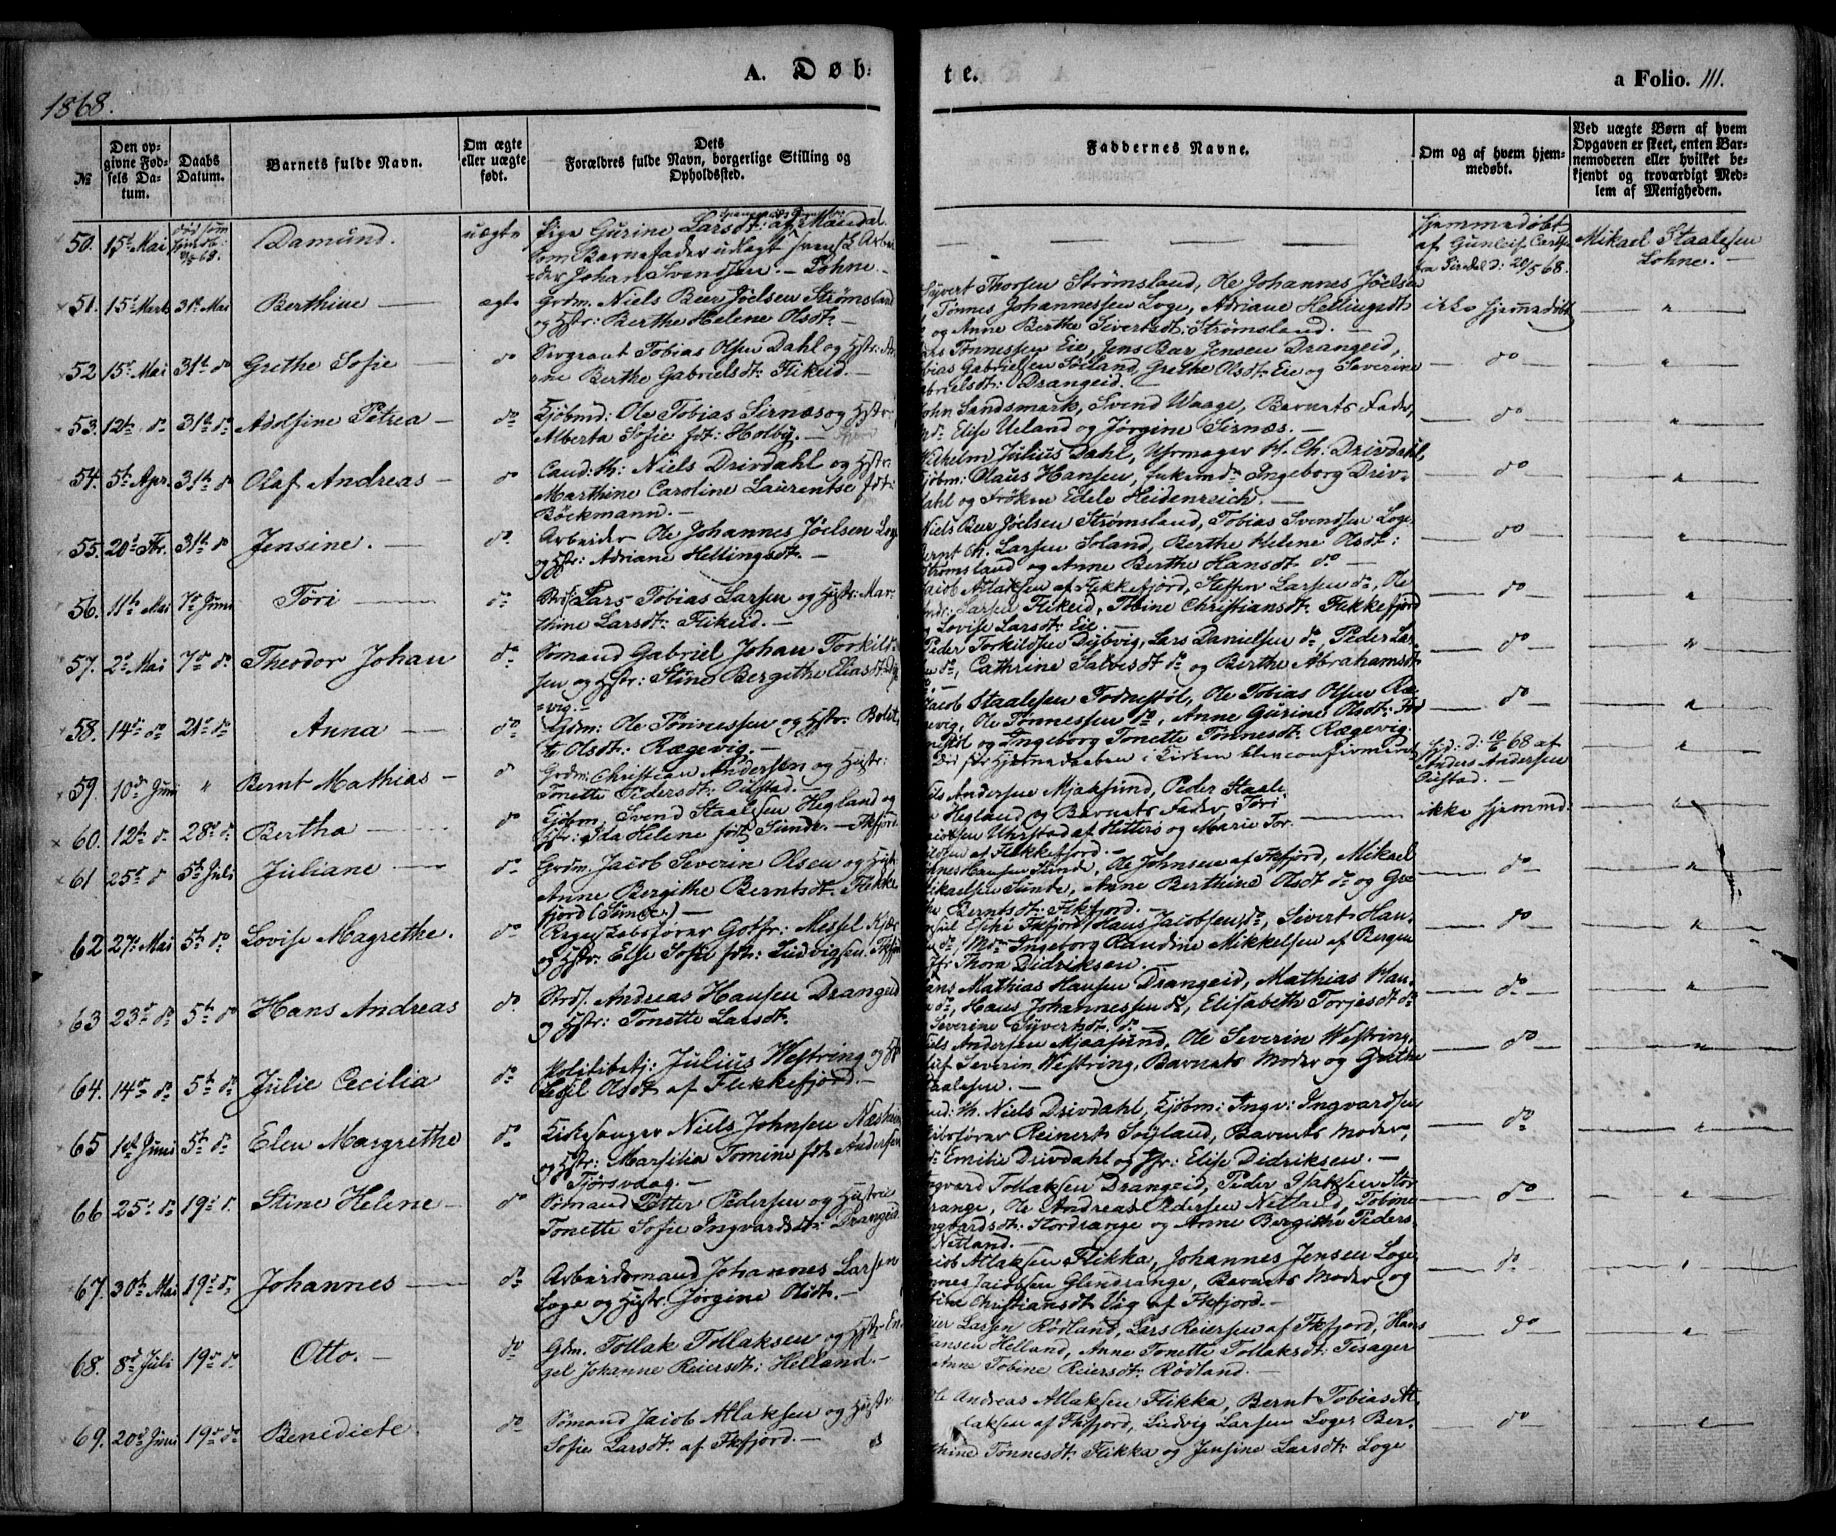 1868.
A. Døb-
te.
a Folio. 111.
№
Den op-
givne Fød-
sels Da-
tum.
Daabs
Datum.
Barnets fulde Navn.
Om ægte
eller uægte
født.
Dets
Forældres fulde Navn, borgerlige Stilling og
Opholdssted.
Faddernes Navne.
Om og af hvem hjem-
medøbt.
Ved uægte Børn af hvem
Opgaven er skeet, enten Bar-
nemoderen eller hvilket be-
kjendt og troværdigt Med-
lem af Menigheden.
50. 15de Mai Damund. uægte Pige Gurine Larsdt: af Mandal
som Barnefader udlagt svensk Arbei
der Johan Svendsen. — Lohne.
Hjemmedøbt
af Gunleif
fra Sirdal d: 20/5 68.
Mikael Staalesen
Lohne. —
51. 15de Marts 31te Mai Berthine — ægte Grdm: Niels Beer Jöelsen Strømsland
og Hstr: Berthe Helene Olsdt: —
Syvert Thorsen Strømsland, Ole Johannes Jöelsen
Tønnes Johannessen Loge, Adriane Hellingsdt
og Anne Berthe Sivertsdt: Strømsland. —
ikke hjemmedøbt — " —
52 15de Mai 31te do Grethe Sofie — do Sergeant Tobias Olsen Dahl og Hstr: An
ne Berthe Gabrielsdt: Flikeid. —
Tønnessen Eie, Jens Bar Jensen Drangeid,
Tobias Gabrielsen Søiland, Grethe Olsdt: Eie og Severine
Gabrielsdt: Drangeid. —
— do — — " —
53. 12te do 31te do Adolfine Petrea — do Kjøbmd: Ole Tobias Sirnæs og Hstr:
Alberta Sofie fdt: Holby. —
John Sandsmark, Svend Waage, Barnets Fader,
Elise Ueland og Jørgine Sirnæs. —
— do — — " —
54. 5te Apr. 31te do Olaf Andreas — do Cand: th: Niels Drivdahl og Hstr:
Marthine Caroline Laurentse fdt:
Böckmann. —
Wilhelm Julius Dahl, Uhrmager H. Ch: Drivdahl,
Kjøbm: Olaus Hansen, Ingeborg Driv-
dahl og Frøken Edele Heidenreich. —
— do — — " —
55. 20de 31te do Jensine. — do Arbeider Ole Johannes Jöelsen Loge
og Hstr: Adriane Hellingsdt: —
Niels Beer Jöelsen Strømsland, Tobias Svendsen Loge
Bernt Ch. Larsen Soland, Berthe Helene Olsdt:
Strømsland og Anne Berthe Hansdt do —
— do — — " —
56. 11te Mai 7de Juni Töri — do Lars Tobias Larsen og Hustr: Mar-
thine Larsdt: Flikeid. —
Jacob Atlaksen af Flekkefjord, Steffen Larsen do, Ole
Larsen Flikeid, Tobine Christiansdt: Flikkefjord
og Lovise Larsdt: Eie. —
— do — — " —
57. 2de Mai 7de do Theodor Johan do Sømand Gabriel Johan Torkild-
sen og Hstr: Stine Bergithe Eliasdt: Dyb
vig. —
Peder Torkildsen Dybvig, Lars Danielsen do, Peder Lar-
sen do, Cathrine Salvesdt do og Berthe Abrahamsdt
do. —
— do — — " —
58. 14de do 21de do Anna — do Grdm: Ole Tønnessen og Hstr: Bolet-
te Olsdt: Rægevig. —
Jacob Staalesen Todnestøl, Ole Tobias Olsen Ræ-
gevig, Ole Tønnessen do, Anne Gurine Olsdt: Tod
nestøl og Ingeborg Tonette Tønnesdt: Rægevig.
— do — — " —
59. 10de Juni " Bernt Mathias — do Grdm: Christian Andersen og Hustr:
Tonette Pedersdt: Øustad. —
Død før Hjemmedaaben i Kirken blev confirmeret
Hjd: d: 10/6 68 af
Anders Andersen
Øustad. — — " —
60. 12te do 28de do Bertha — do Kjøbm. Svend Staalesen Hegland og
Hstr: Ida Helene fdt: Sunde. — Fkfjord
Nils Andersen Mjaasund, Peder Staale
sen Hegland og Barnets Fader, Töri
Uhrstad af Hitterø og Marie Tor.
kildsen af Flikkefjord. —
ikke hjemmd: — " —
61 25de do 5te Juli Juliane — do Grdm. Jacob Severin Olsen og Hustr
Anne Bergithe Berntsdt: Flikke
fjord (Sunde.) —
Johannes Hansen Sunde, Ole Johnsen af Fkfjord, Mikael
Mikaelsen Sunde, Anne Berthine Olsdt do og Gre
the Berntsdt: Fkfjord. —
— do — — " —
62 27de Mai 5te do Lovise Magrethe. do Regnskabsfører Gotfr: Messel Kjær
og Hstr: Else Sofie fdt: Ludvigsen. Fkfjord
Fkfjord, Hans Jacobsen do, Sivert Han-
sen do, Mdm Ingeborg Raudine Mikkelsen af Bergen
Jfr Thora Didriksen. —
— do — — " —
63 23de do 5te do Hans Andreas do Strds. Andreas Hansen Drangeid
og Hstr: Tonette Larsdt.
Hans Mathias Hansen Drangeid, Mathias Han-
sen do, Hans Johannessen do, Elisabeth Torjesdt do
Severine Syvertsdt. do —
— do — — " —
64. 14de do 5te do Julie Cecilia do Politibetj: Julius Westring og Hstr
Sesil Olsdt af Flikkefjord. —
Niels Andersen Mjaasund, Ole Severin Westring,
Severin Westring, Barnets Moder og Grethe
Staalesen. —
— do — — " —
65 1ste Juni 5te do Elen Margrethe do Kirkesanger Niels Johnsen Næsheim
og Hstr: Marsilia Tomine fdt: Andersen
Tjørsvaag. —
Cand: th. Niels Drivdahl, Kjøbm: Ingv: Ingvardsen
Skibsfører Reinert Søyland, Barnets Moder,
Emilie Drivdahl og Jfr: Elise Didriksen. —
— do — — " —
66 25de do 19de do Stine Helene — do Sømand Petter Pedersen og Hustru
Tonette Sofie Ingvardsdt: Drangeid
Ingvard Tollaksen Drangeid, Peder Isaksen Stor
drange, Ole Andreas Pedersen Netland, Tobine
Ingvardsdt: Stordrange og Anne Bergithe Peders-
dt Netland. —
— do — — " —
67. 30te Mai 19de do Johannes — do Arbeidsmand Johannes Larsen
Loge og Hustr. Jørgine Olsdt. —
Jacob Atlaksen Flikka, Johannes Jensen Loge,
Tønnes Jacobsen Glendrange, Barnets Moder, og
Tobine Christiansdt Vaag af Fkfjord. —
— do — — " —
68. 8de Juli 19de do Otto. — do Gdm. Tollak Tollaksen og Hstr En-
gel Johanne Reiersdt: Helland. —
Reier Larsen Rødland, Lars Reiersen af Fkfjord, Hans
Hansen Helland, Anne Tonette Tollaksdt: Tisager
Anne Tobine Reiersdt: Rødland. —
— do — — " —
69. 20de Juni 19de do Benedicte. do Sømand Jacob Atlaksen og Hustr
Sofie Larsdt: af Fkfjord. —
Ole Andreas Atlaksen Flikka, Bernt Tobias At-
laksen af Fkfjord, Ludvig Larsen Loge, Ber-
thine Tønnesdt: Flikka og Jensine Larsdt: Loge
— do — — " —